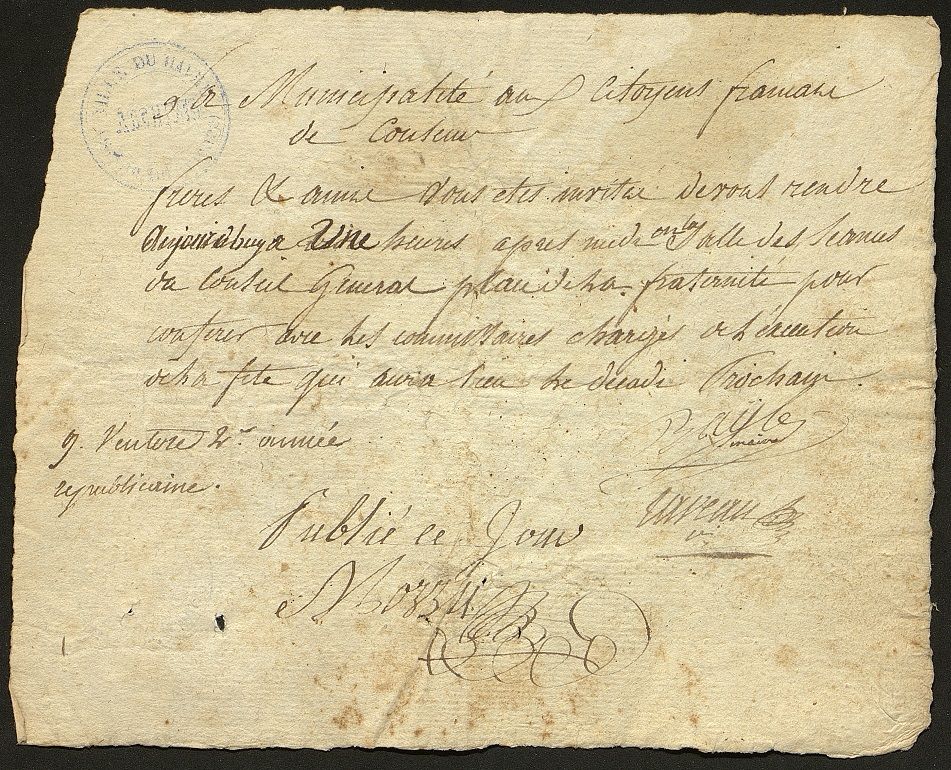 VILLE DU HAVRE
ARCHIVES
La Municipalité aux Citoyens francais
de Couleur
freres & amis Vous etes invités de vous rendre
Aujourdhuy a Une heures apres midi en la Salle des Seances
du Conseil General place de la fraternité pour
conferer avec les commissaires chargés de l'execution
de la fete qui aura lieu le decadi Prochain.
9. Ventose 2e année
republicaine.
maire
Taveau
Publié ce Jour